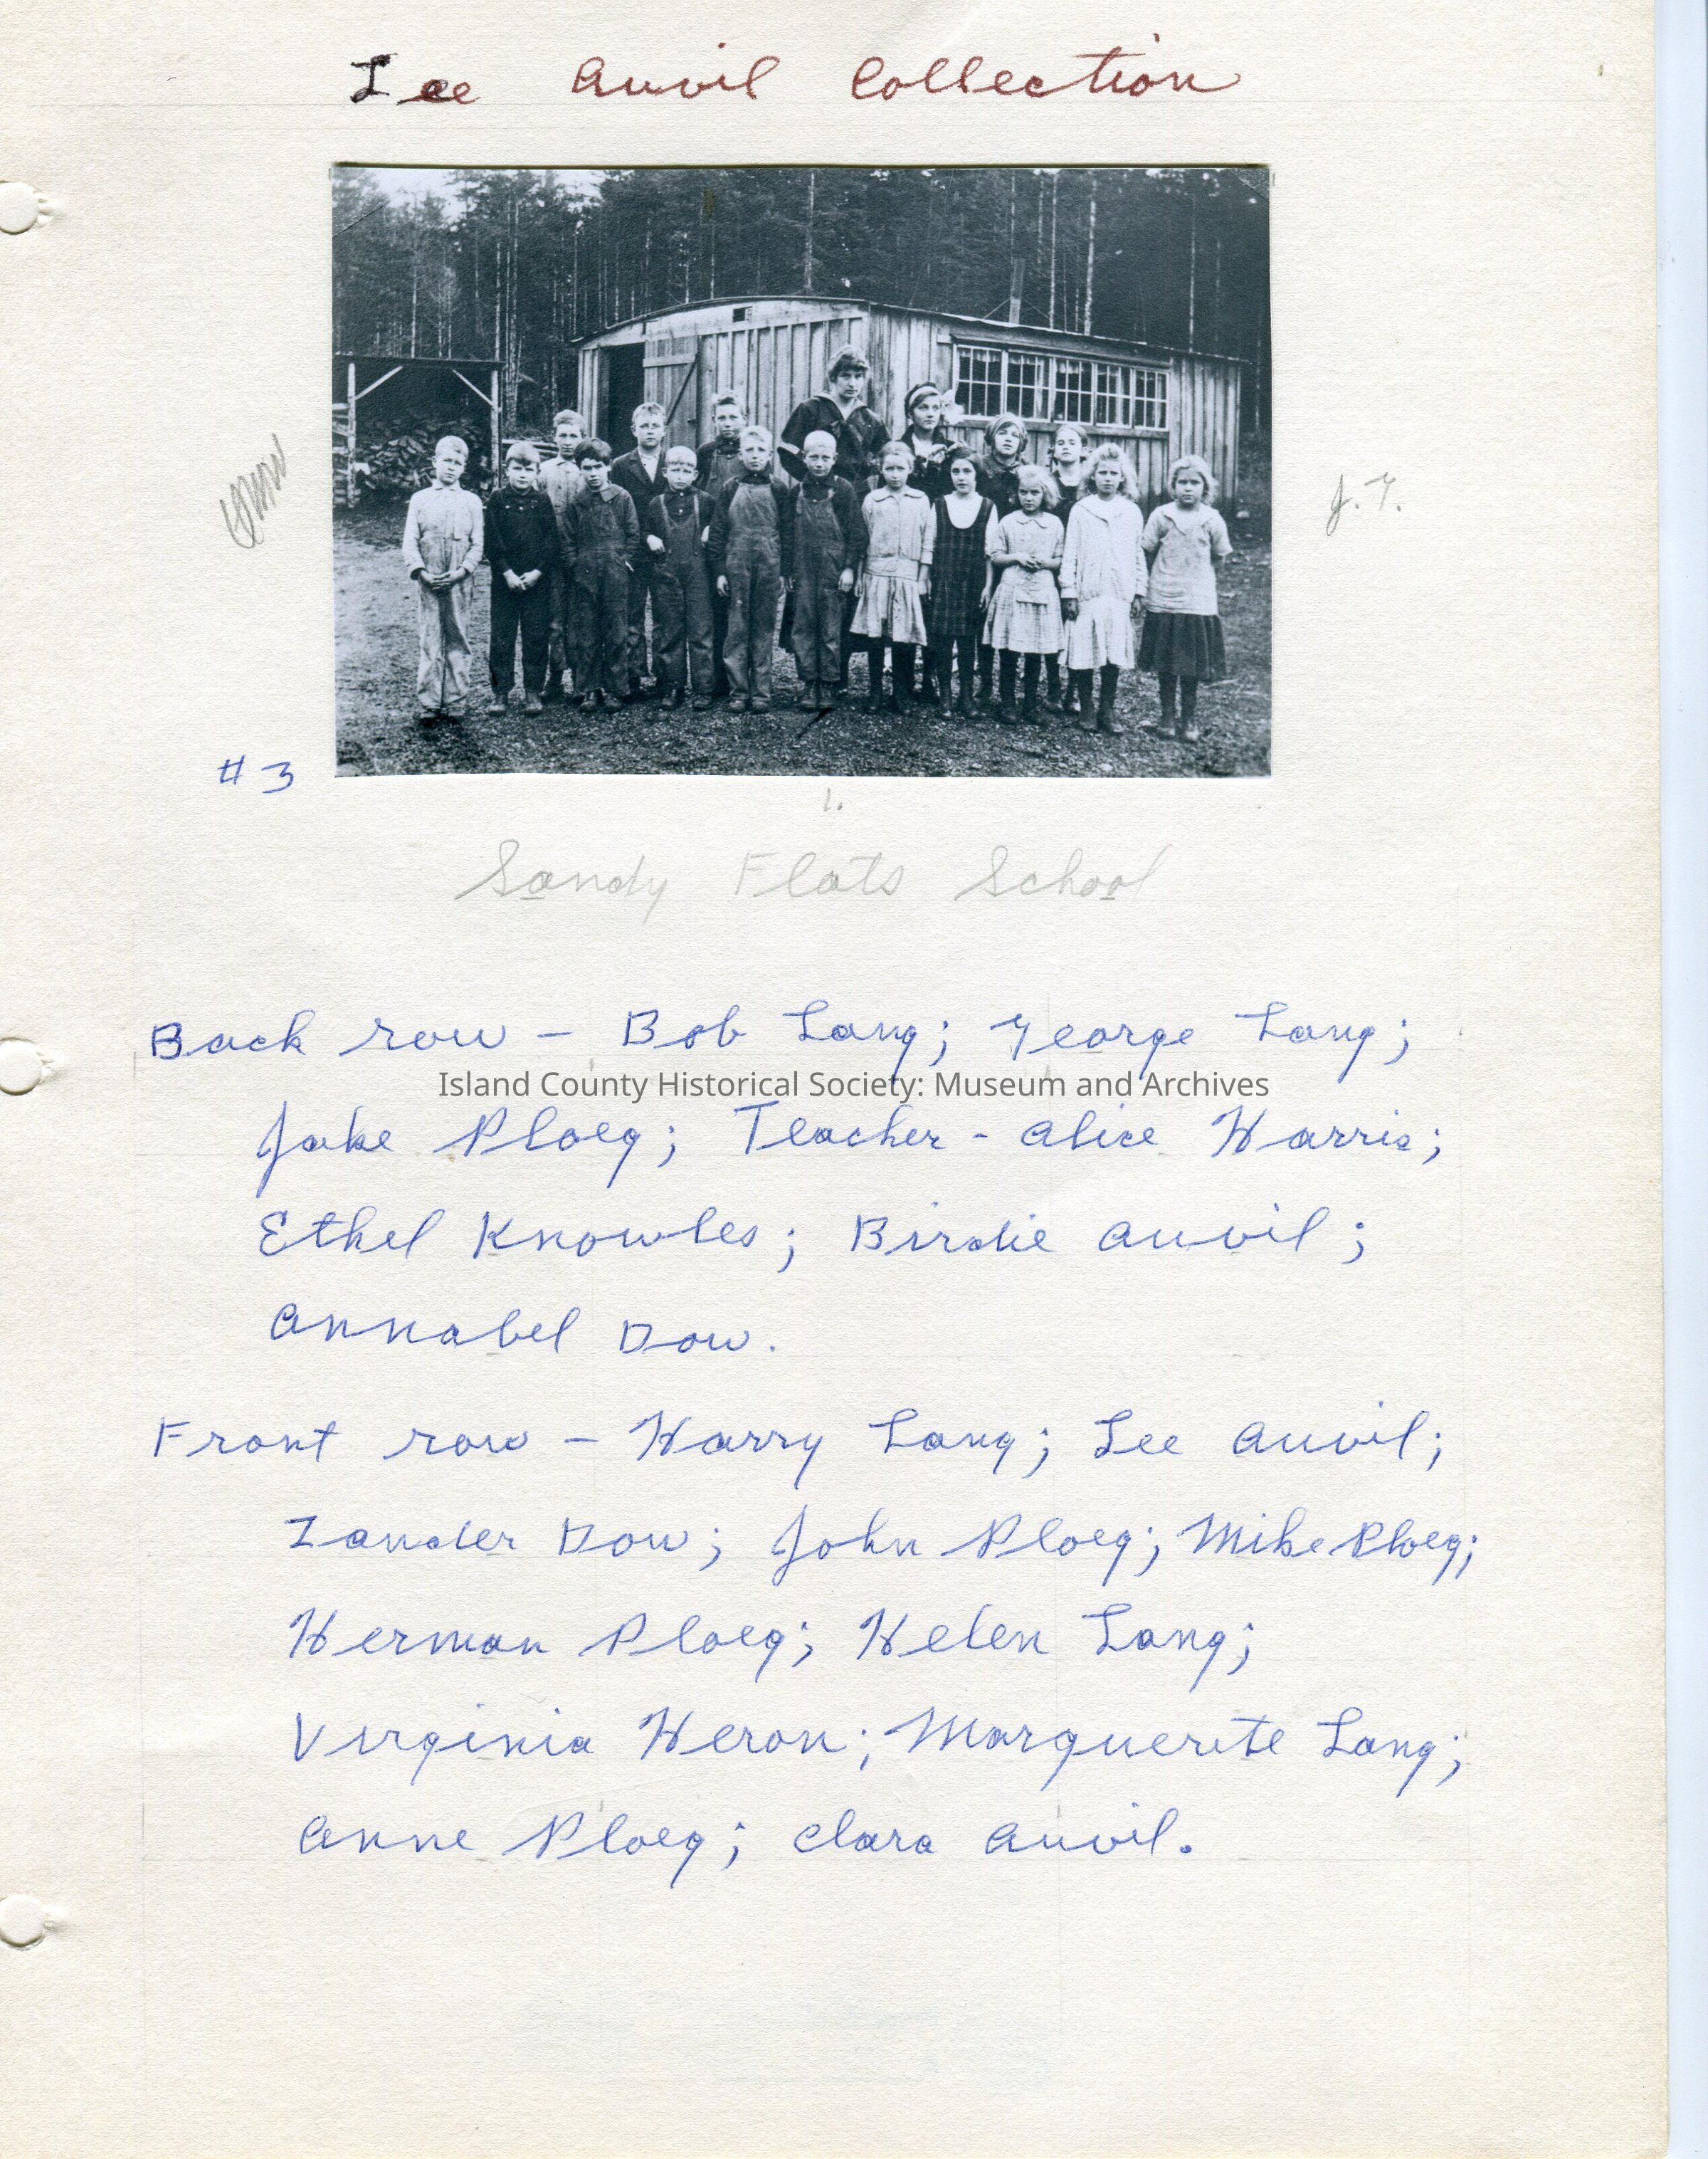 Lee Anvil Collection
J. T.
#3
1.
Sandy Flats School
Back row - Bob Lang; George Lang;
Island County Historical Society: Museum and Archives
Jake Ploeg; Teacher - Alice Harris;
Ethel Knowles; Birdie Anvil;
Annabel Dow.
Front row - Harry Lang; Lee Anvil;
Zander Dow; John Ploeg; Mike Ploeg;
Herman Ploeg; Helen Lang;
Virginia Heron; Marguerite Lang;
Anne Ploeg; Clara Anvil.